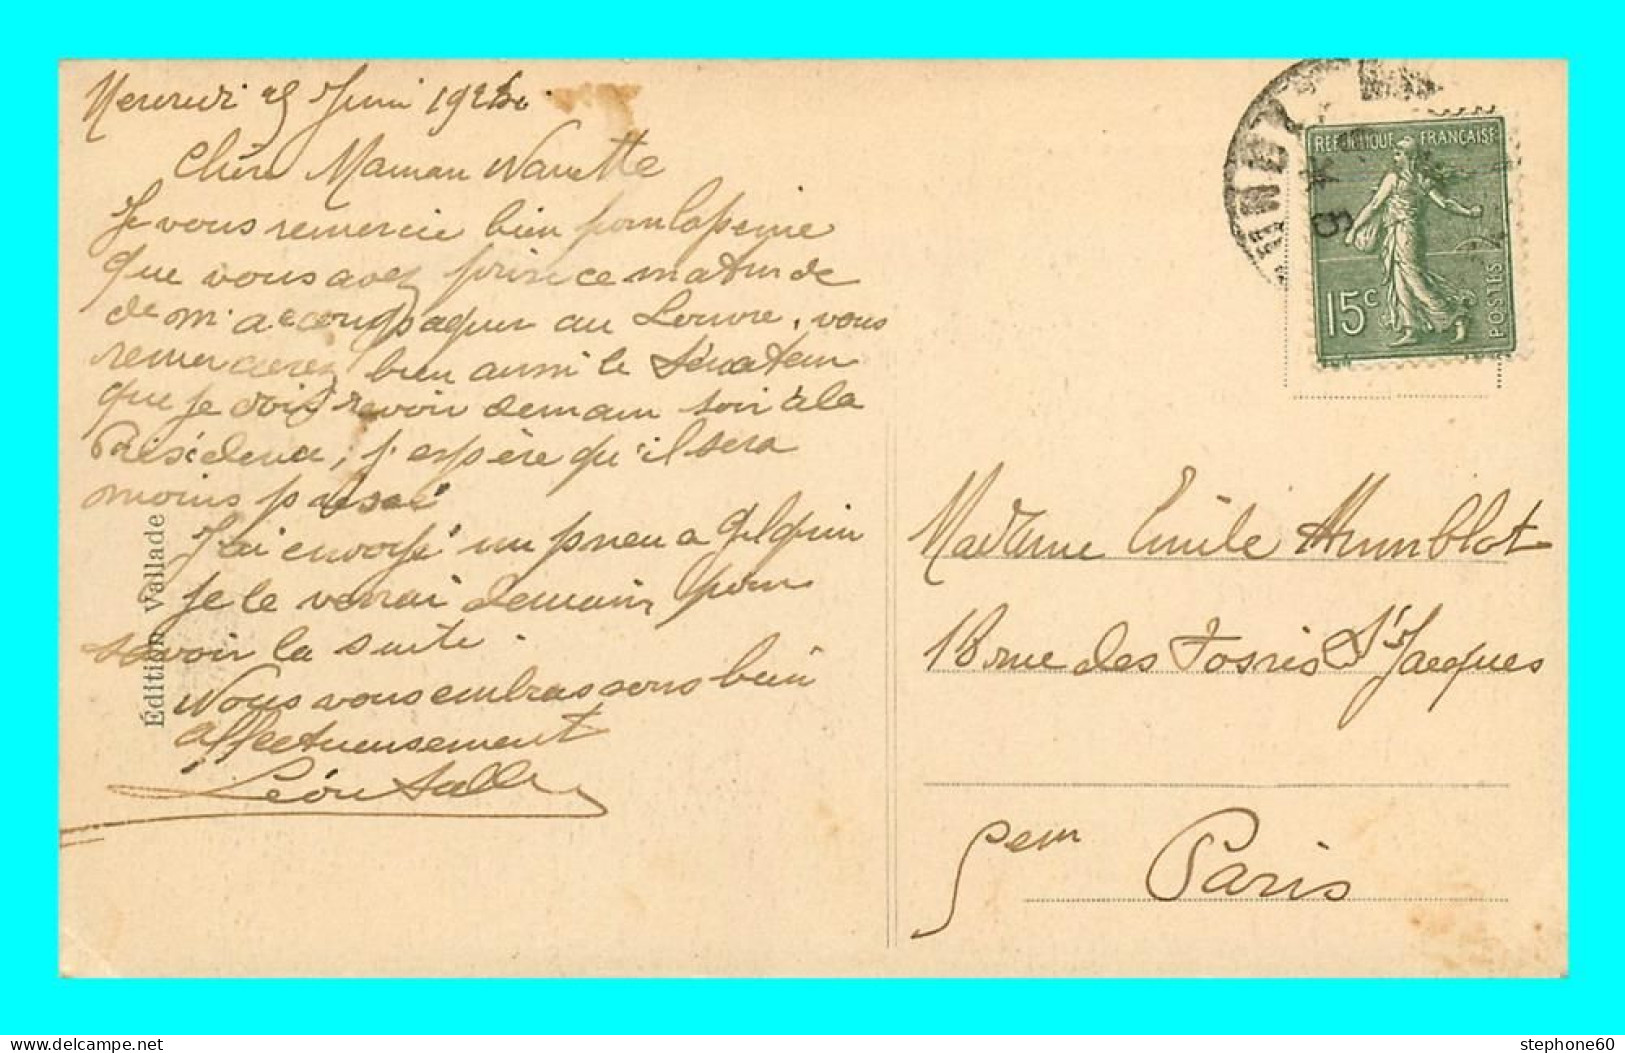 Mercredi 25 Juin 192
Chère Maman Nanette
Je vous remercie bien pour la peine
que vous avez prise ce matin de
de m'accompagner au Louvre, vous
remercierez bien aussi le Sénateur
que je dois revoir demain soir à la
Présidence, j'espère qu'il sera
moins pressé
J'ai envoyé un pneu a
je le verrai demain pour
savoir la suite.
Nous vous embrassons bien
affectueusement
Léon
Édition Vallade
RÉPUBLIQUE FRANÇAISE
15c
POSTES
Madame Emile Humblot
18 rue des Fossés St Jacques
Paris
stephone60